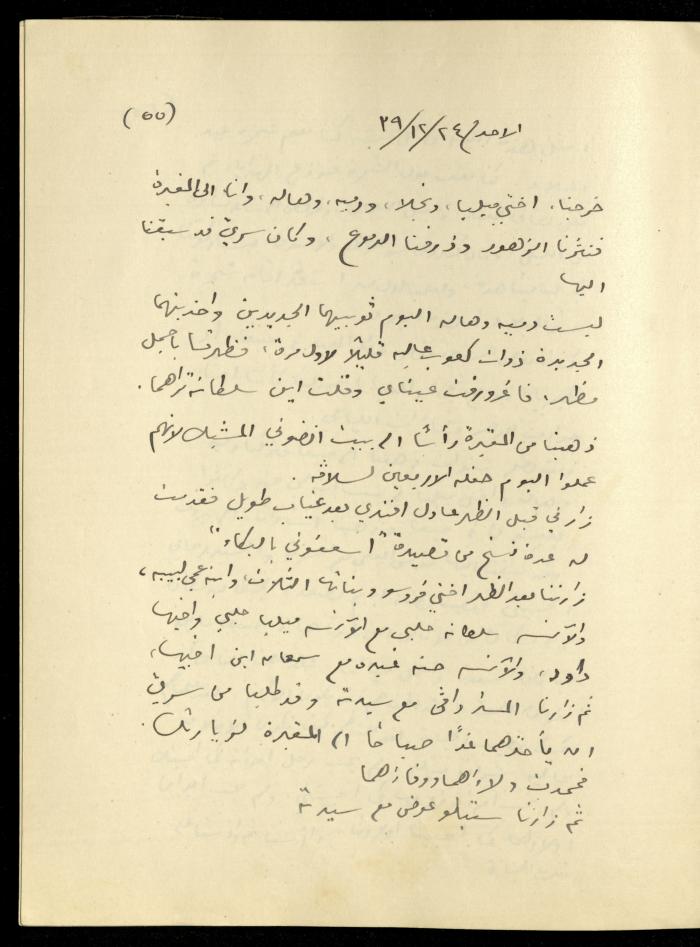 (٥٥)
الاحد ٢٤/١٢/٣٩
خرجنا، اختي ميليا، ونجلا، ودميه، وهاله، وانا الى المقبرة
فنثرنا الزهور وذرفنا الدموع، وكان سري قد سبقنا
اليها
لبست دميه وهاله اليوم ثوبيهما الجديدين واحذيتهما
الجديدة ذوات كعوب عاليه قليلاً لاول مرة، فظهرتا باجمل
مظهر. فاغرورقت عيناي وقلت اين سلطانة تراهما.
ذهبنا من المقبرة رأساً الى بيت انضوني المشبك لانهم
عملوا اليوم حفله الاربعين لسلافه.
زارني قبل الظهر عادل افندي بعد غياب طويل فقدمت
له عدة نسخ من قصيدة "اسعفوني بالبكاء"
زارتنا بعد الظهر اختي فروسو وبناتها الثلاث، وابنة عمي لبيبه،
والآنسه سلطانه حلبي مع الآنسه ميليا حلبي واخيها
داود، والآنسه حنه غبده مع سمعان ابن اخيها،
ثم زارنا المستر دافي مع سيدته وقد طلبا من سري
ان يأخذهما غداً صباحاً الى المقبرة لزيارتك.
فحمدت ولاءهما ووفاءهما
ثم زارنا ستيلو عوض مع سيدته